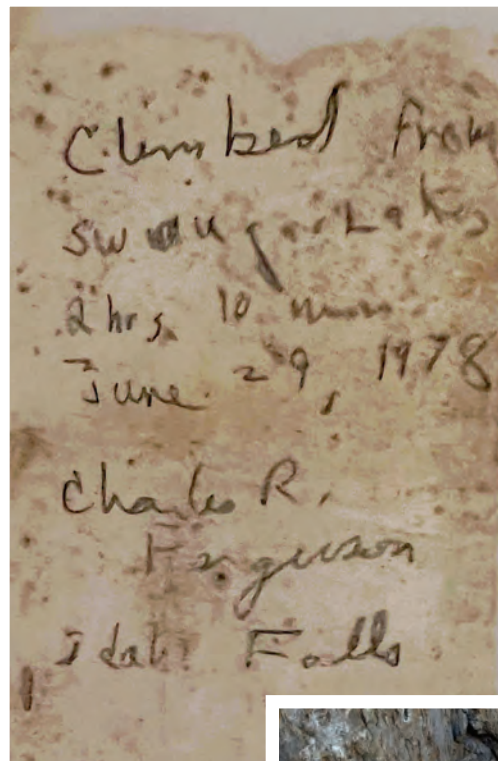 Climbed from
Swauger Lakes
2 hrs. 10 min.
June 29, 1978
Charles R.
Ferguson
Idaho Falls